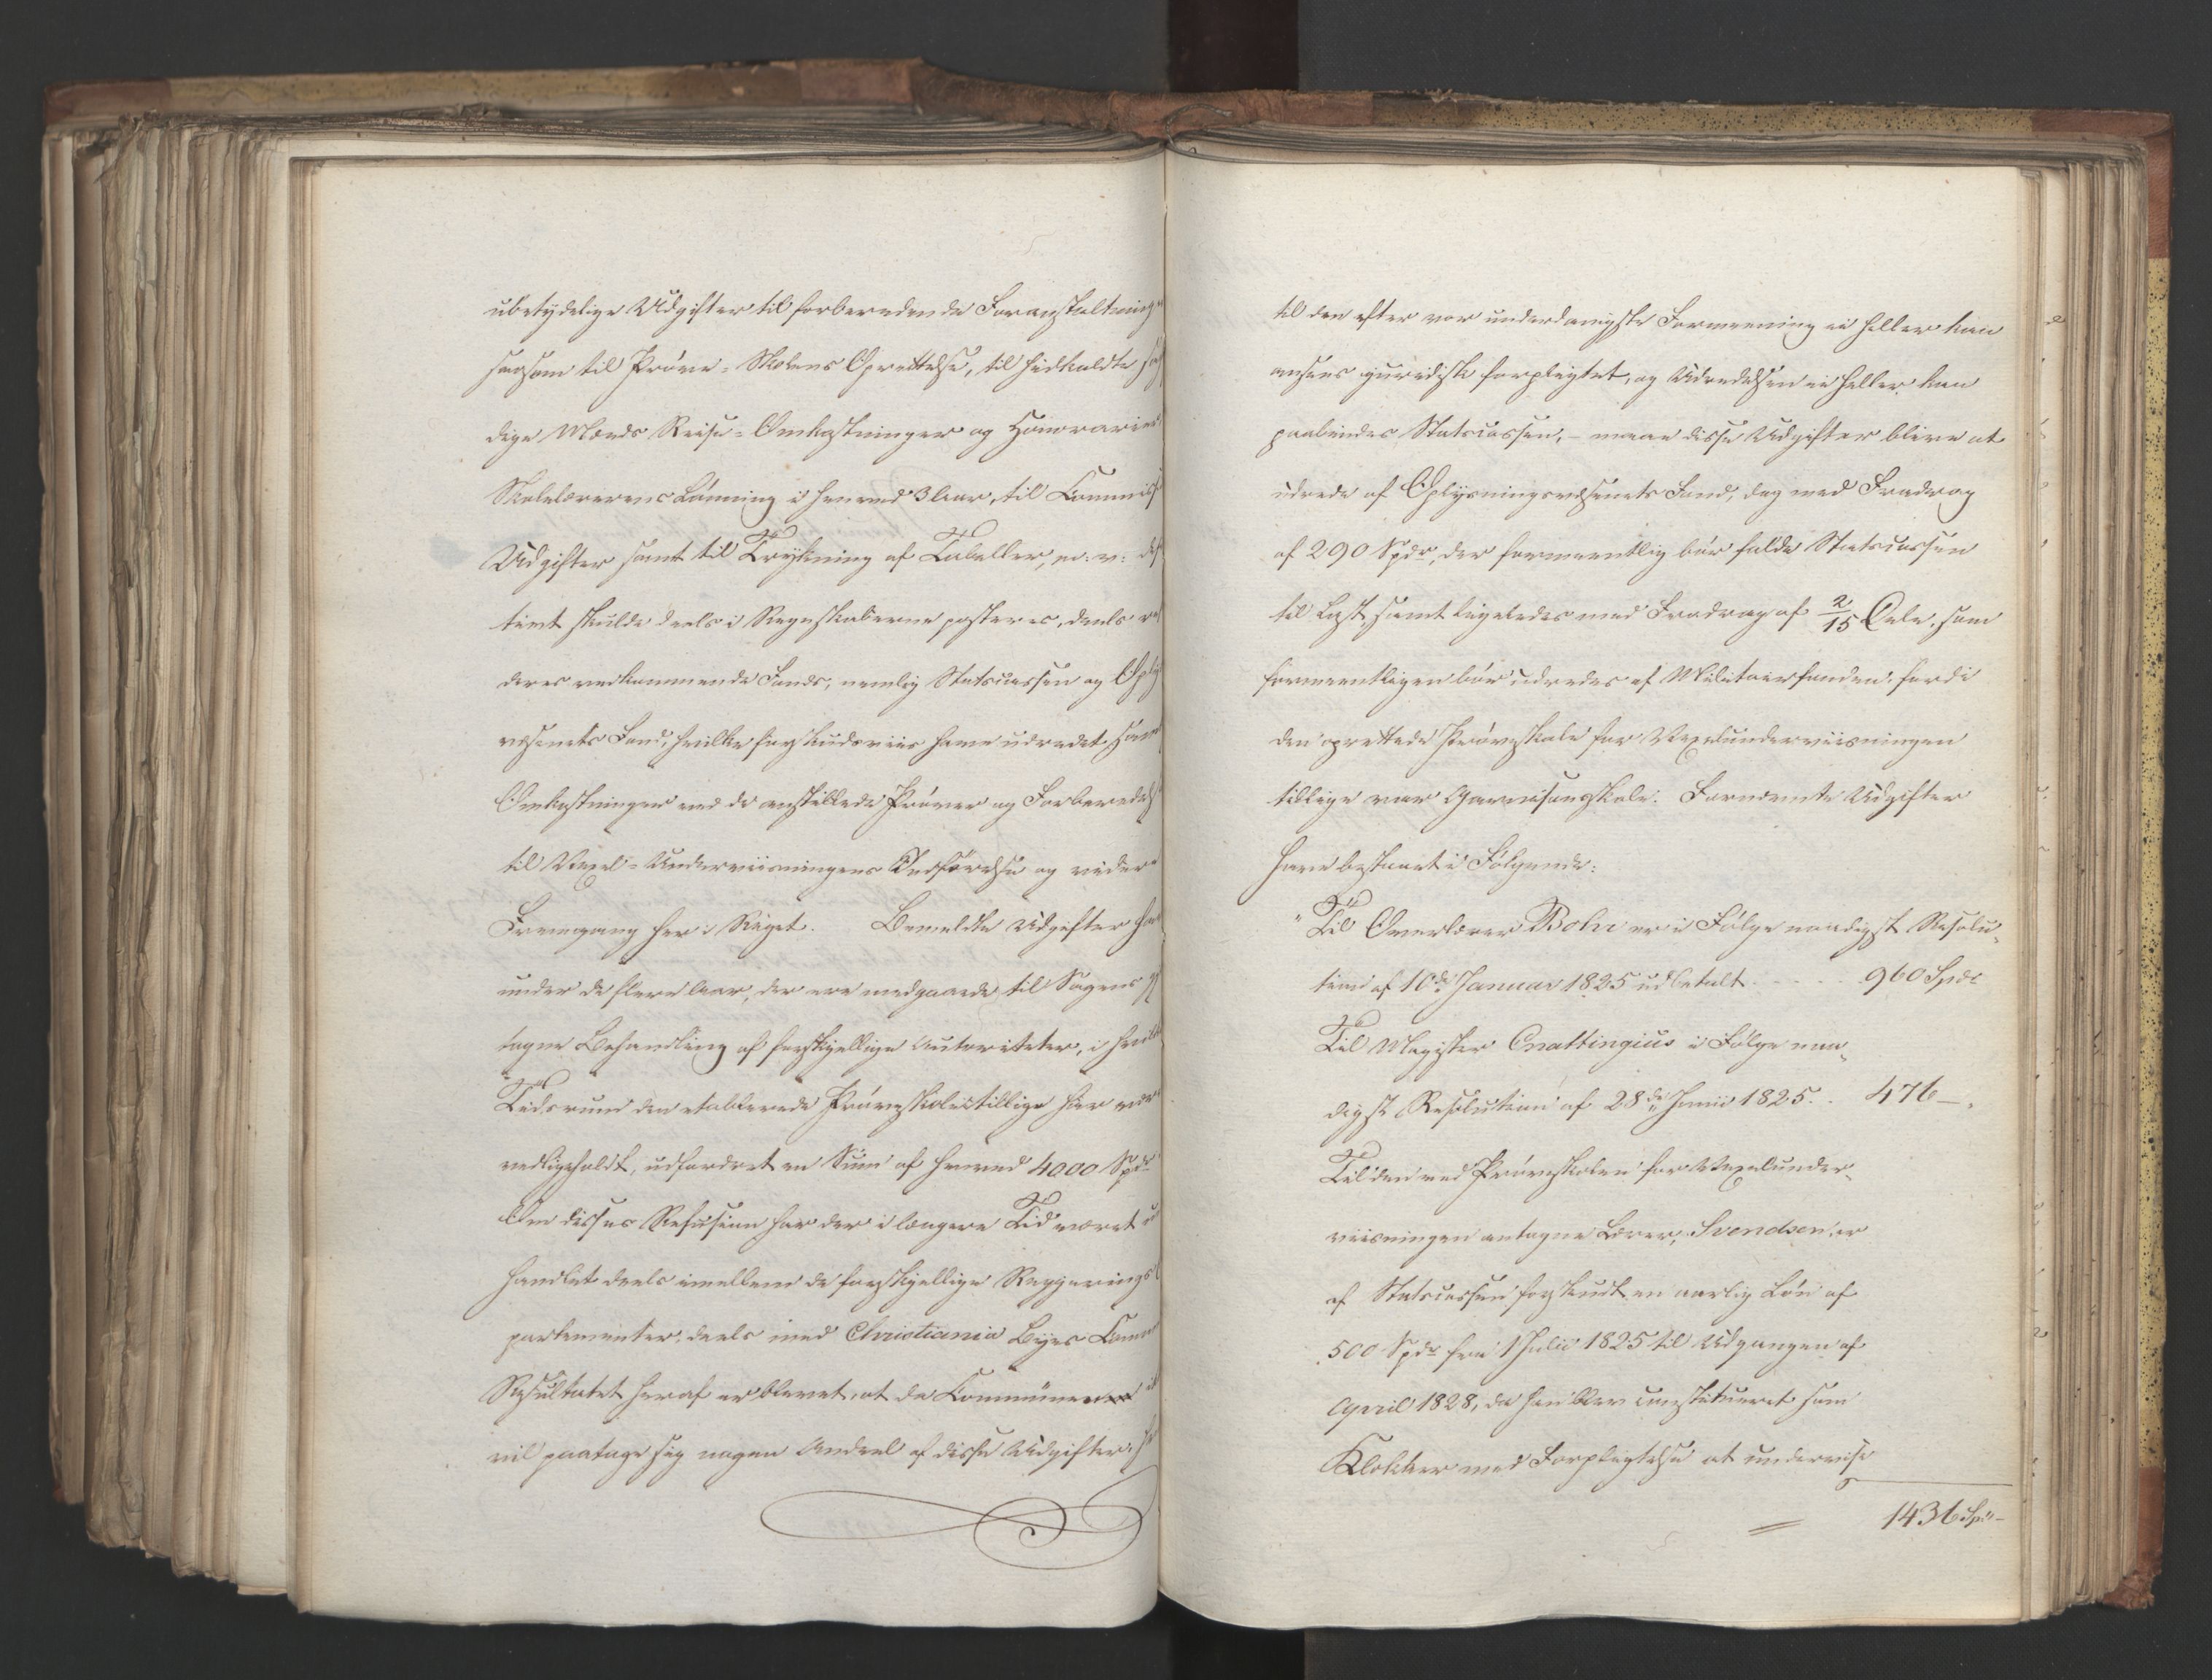 ubetydelige Udgifter til forberedende Foranstaltning
saasom til Prøve-Skolens Oprettelse, til hidkaldte
dige Mænds Reise-Omkostninger og Honorarier
Skolelærerens Lønning i henved 3 Aar, til Commiss
Udgifter samt til Trykning af Tabeller, m: v:
timt skulde deels i Regnskaberne posteres, deels
deres vedkommende Fonds, nemlig Statscassen og Oply
væsenets Fond, hvilke forskudsviis have udredet
Omkostninger ved de anstillede Prøver og Forberedels
til Vexel-Underviisningens Indførelse og videre
Fremgang her i Riget. Bemeldte Udgifter ha
under de flere Aar, der ere medgaaede til Sagens
tagne Behandling af forskjellige Autoriteter, i hvilk
Tidsrum den etablerede Prøveskole tillige har vær
vedligeholdt, udfordret en Sum af henved 4000 Spdr
Om disses Refusion har der i længere Tid været u
handlet deels imellem de forskjellige Regjerings
partementer, deels med Christiania Byes Comm
Resultatet heraf er blevet, at da Communen
vil paatage sig nogen Andeel af disse Udgifter,
til den efter vor underdanigste Formeening ei heller kan
ansees juridisk forpligtet, og Udredelsen ei heller kan
paabindes Statscassen, – maae disse Udgifter blive at
udrede af Oplysningsvæsenets Fond, dog med Fradrag
af 290 Spdr, der formeentlig bør falde Statscassen
til Last, samt ligeledes med Fradrag af 2/15 Dele, som
formeentligen bør udredes af Militairfonden, fordi
den oprettede Prøveskole for Vexelunderviisningen
tillige var Garnisonsskole. Fornævnte Udgifter
have bestaaet i Følgende:
"Til Overlærer Bohr er i Følge naadigst Resolu-
tion af 10de Januar 1825 udbetalt . . . . . 960 Spdr
Til Magister Cnattingius i Følge naa-
digst Resolution af 28de Junii 1825 . . 476 – „
Til den ved Prøveskolen for Vexelunder-
viisningen antagne Lærer, Svendsen, er
af Statscassen forskudt en aarlig Løn af
500 Spdr fra 1 Julii 1825 til Udgangen af
April 1828, da han blev constitueret som
Klokker med Forpligtelse at undervise
1436 Spdr